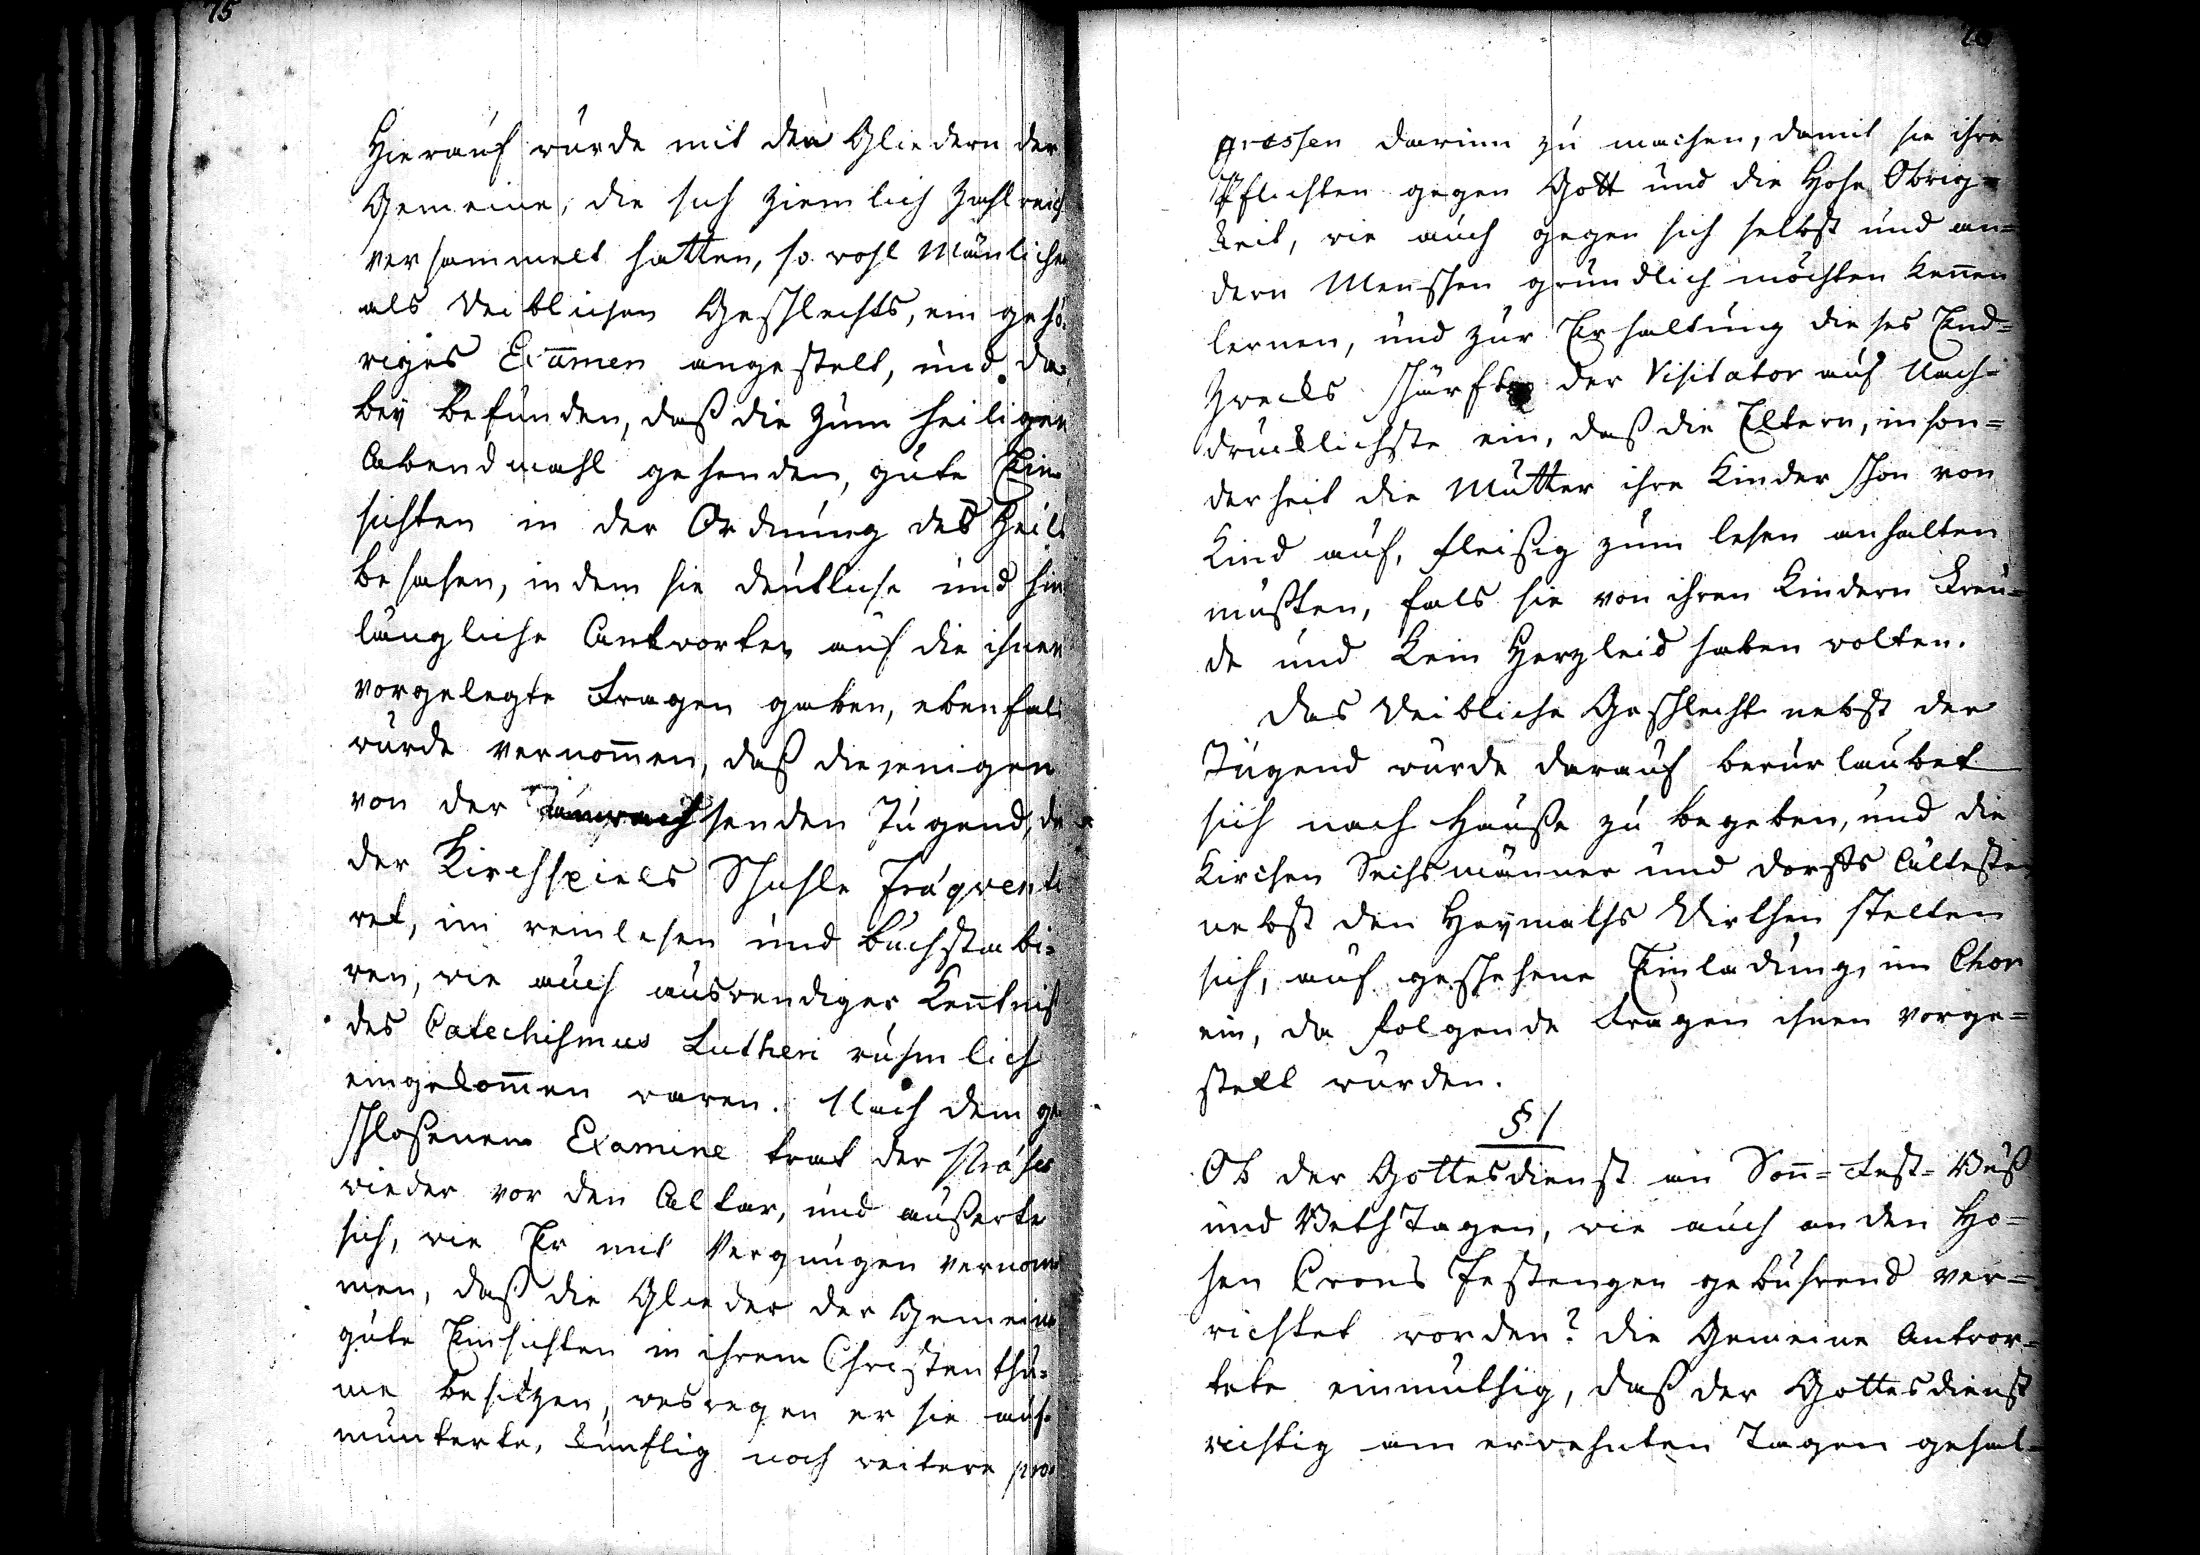 75
Hierauf wurde mit den Gliedern der
Gemeine, die sich ziemlich Zahlreich
versammelt hatten, so wohl Mänlichen
als Weiblichen Geschlechts, ein gehö-
riges Examen angestelt, und da-
bey befunden, daß die zum heiligen
Abendmahl gehenden, gute Ein-
sichten in der Ordnung des Heils
besasen, indem sie deutliche und hin
längliche Antworten auf die ihnen
vorgelegte Fragen gaben, ebenfals
wurde vernom̄en, daß diejenigen
von der senden Jugend, die
der Kirchspiels Schuhle freqventi
ret, im reinlesen und buchstabi-
ren, wie auch auswendiger Kentnis
des Catechismus Lutheri rühmlich
eingekom̄en waren. Nach dem ge
schloßenem Examine trat der Präses
wieder vor den Altar, und äußerte
sich, wie Er mit Vergnügen vernom̄
men, daß die Glieder der Gemeine
gute Einsichten in ihrem Christenthu-
me besitzen, weswegen er sie auf-
munterte, künftig noch weitere pro-
gressen darinn zu machen, damit sie ihre
Pflichten gegen Gott und die Hohe Obrig=
keit, wie auch gegen sich selbst und an=
dern Menschen gründlich möchten kennen
lernen, und zur Erhaltung dieses End=
Zwecks schärfte der Visitator auf Nach=
drücklichste ein, daß die Eltern, inson=
derheit die Mütter ihre Kinder schon von
Kind auf, fleißig zum lesen anhalten
müßten, fals sie von ihren Kindern Freu=
de und kein Herzleid haben wolten.
Das Weibliche Geschlecht nebst der
Jugend wurde darauf beurlaubet
sich nach Hauße zu begeben, und die
Kirchen Sechsmänner und Dorffs Älteste
nebst den Heymaths Wirthen stelten
sich, auf geschehene Einladung, im Chor
ein, da folgende Fragen ihnen vorge=
stelt wurden.
§ 1
Ob der Gottesdienst an Son̄= Fest= Buß
und Beth Tagen, wie auch an den Ho=
hen Crons Festengen gebührend ver=
richtet worden? Die Gemeine Antwor=
tete einmüthig, daß der Gottesdienst
richtig am erwehnten Tagen gehal=